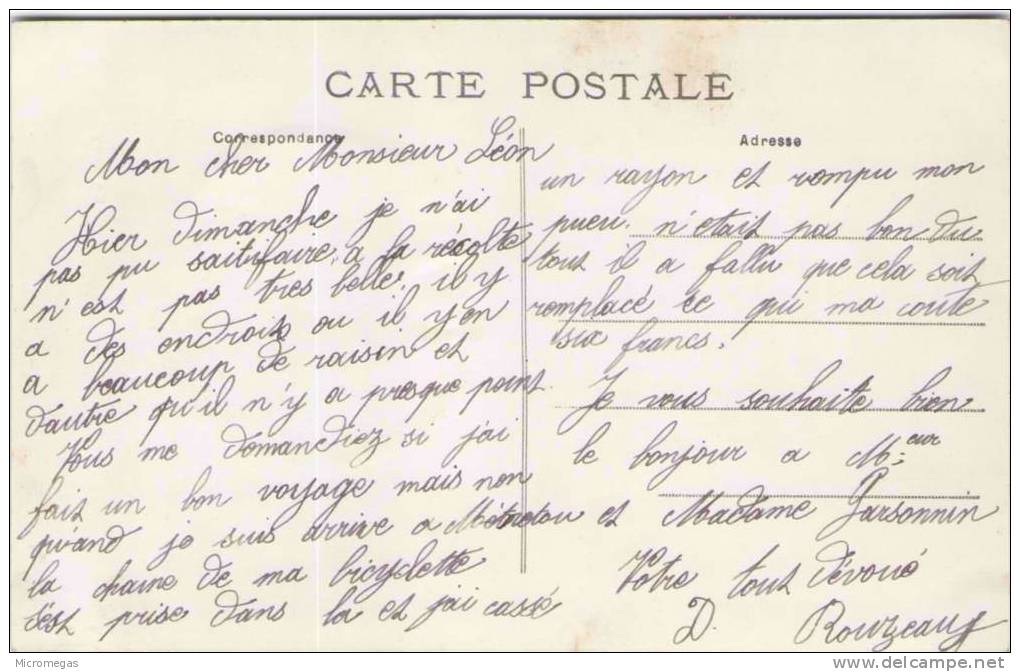 CARTE POSTALE
Correspondance
Mon cher Monsieur Léon
Hier dimanche je n'ai
pas pu saitifaire, a la récolte
n'est pas tres belle, il y
a des endroits ou il y en
a beaucoup de raisin et
d'autre qu'il n'y a presque point
Vous me demandiez si j'ai
fait un bon voyage mais non
quand je suis arrive a
la chaine de ma bicyclette
s'est prise dans la et j'ai cassé
Adresse
un rayon et rompu mon
pneu. n'etait pas bon du
tout il a fallu que cela soit
remplacé ce qui ma coute
six francs.
Je vous souhaite bien
le bonjour a M.eur
et Madame Garsonnin
Votre tout dévoué
D. Rouzeaux
Micromegas
www.delcampe.net